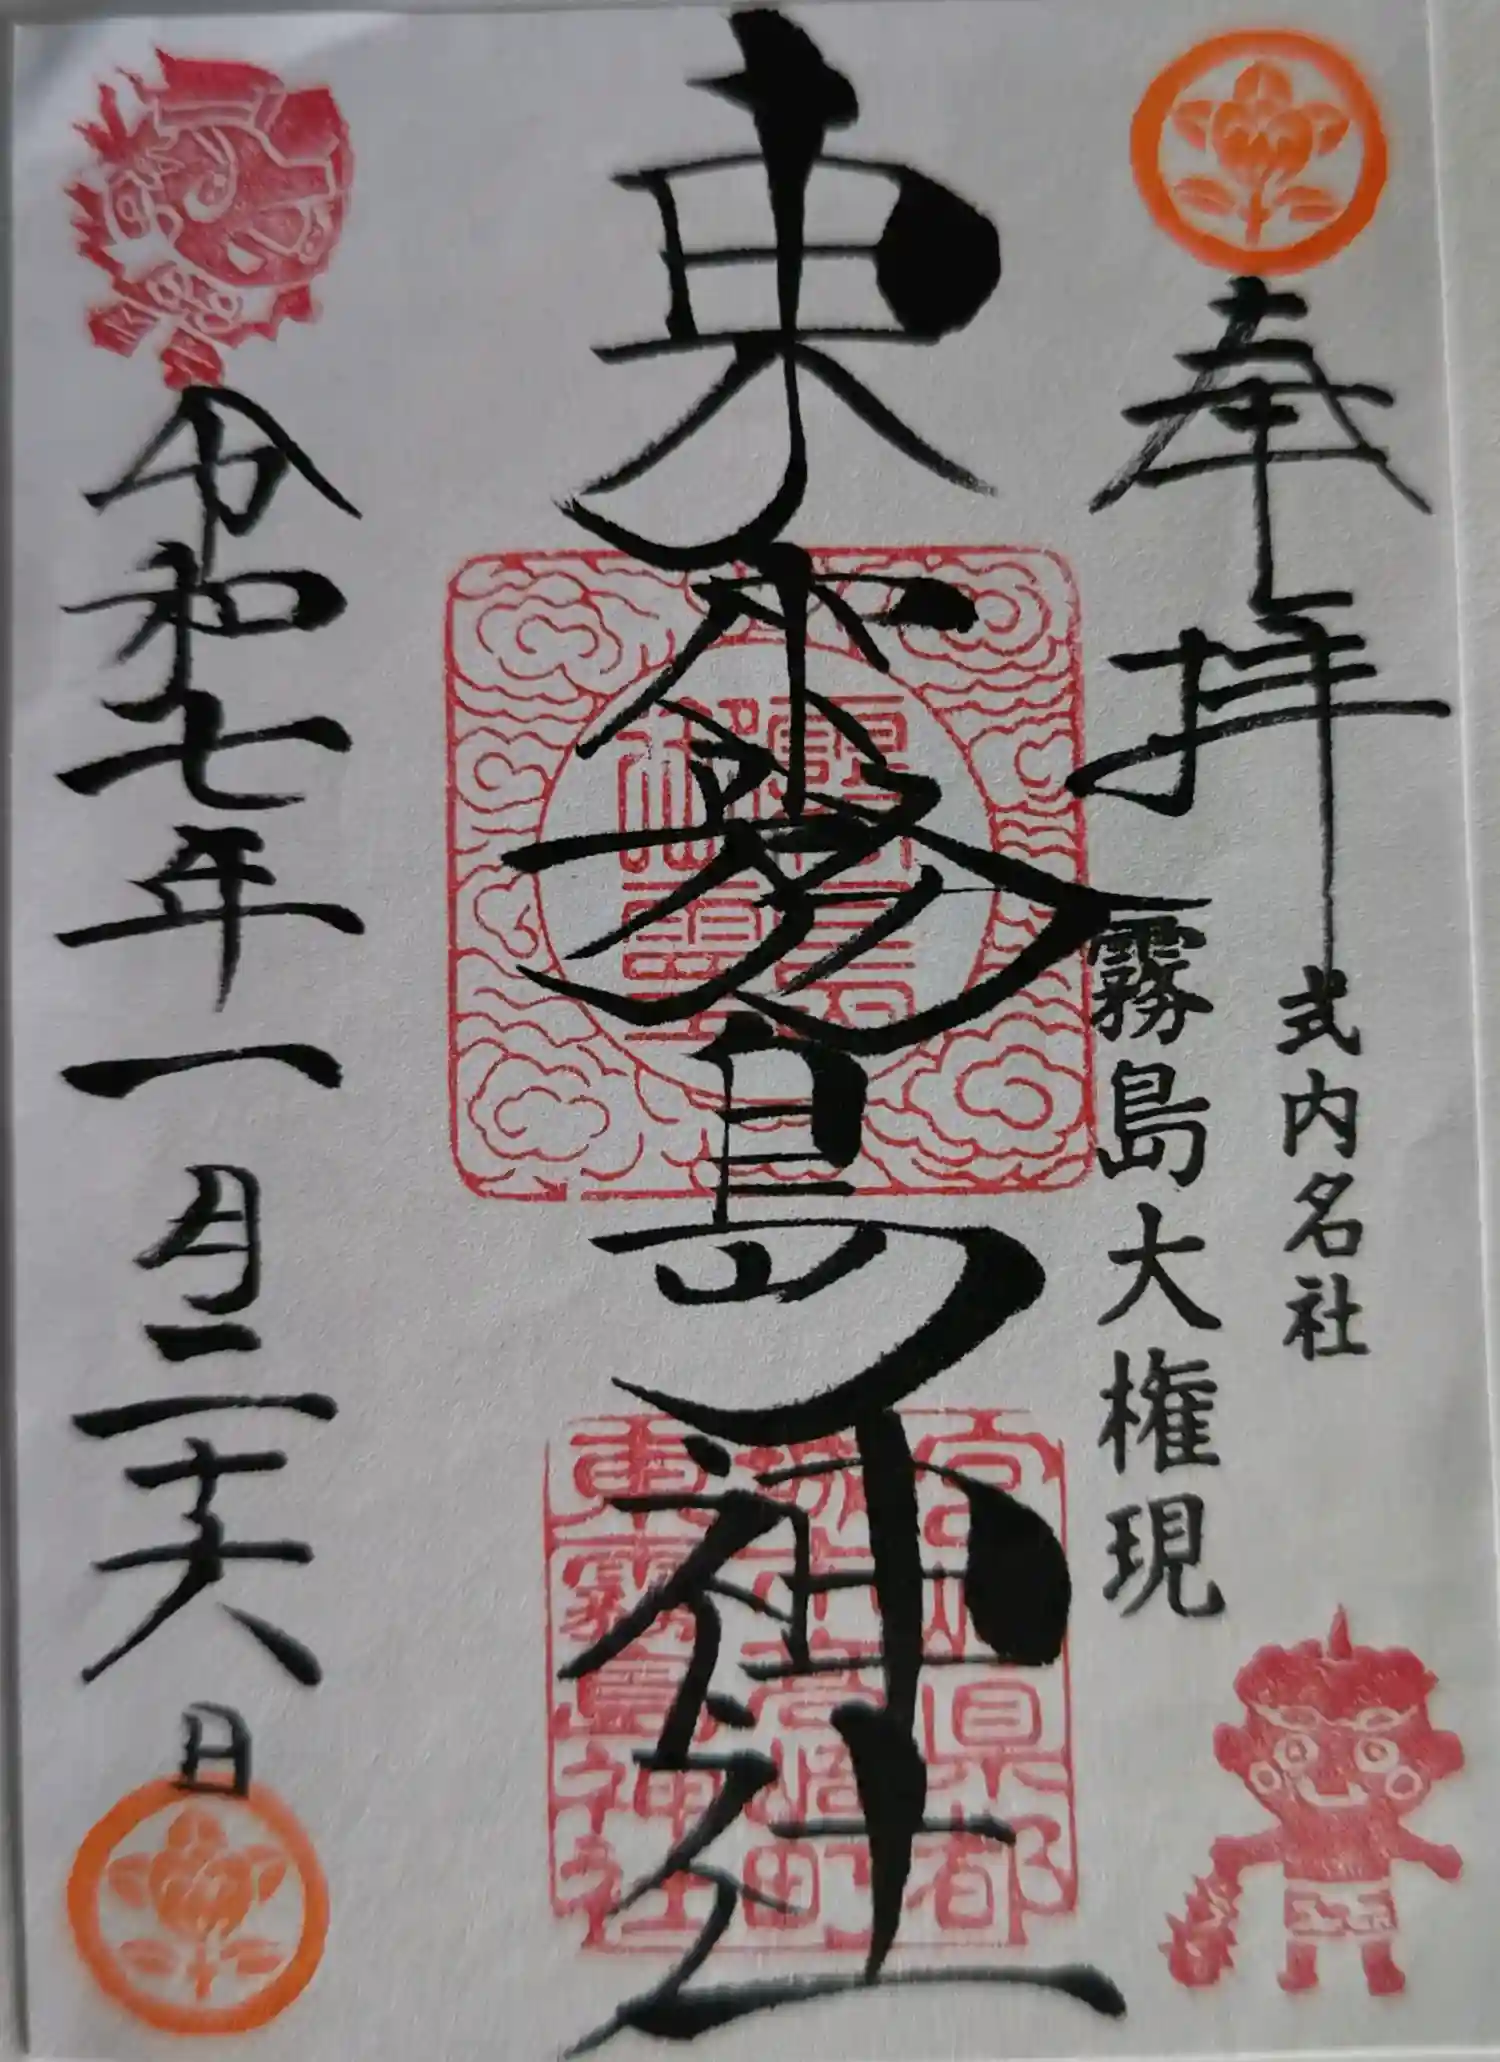 奉拝
式内名社
霧島大権現
東霧島神社
令和七年一月二十六日
宮崎県都
城市高崎町
東霧島神社